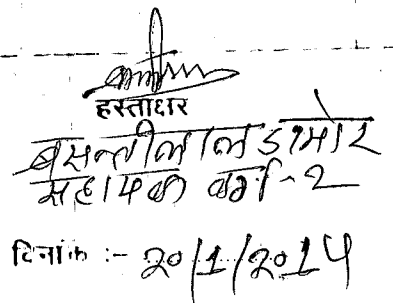 हस्ताक्षर
बसन्तीलाल डामोर
सहायक वर्ग-2
दिनांक :- 20/1/2014